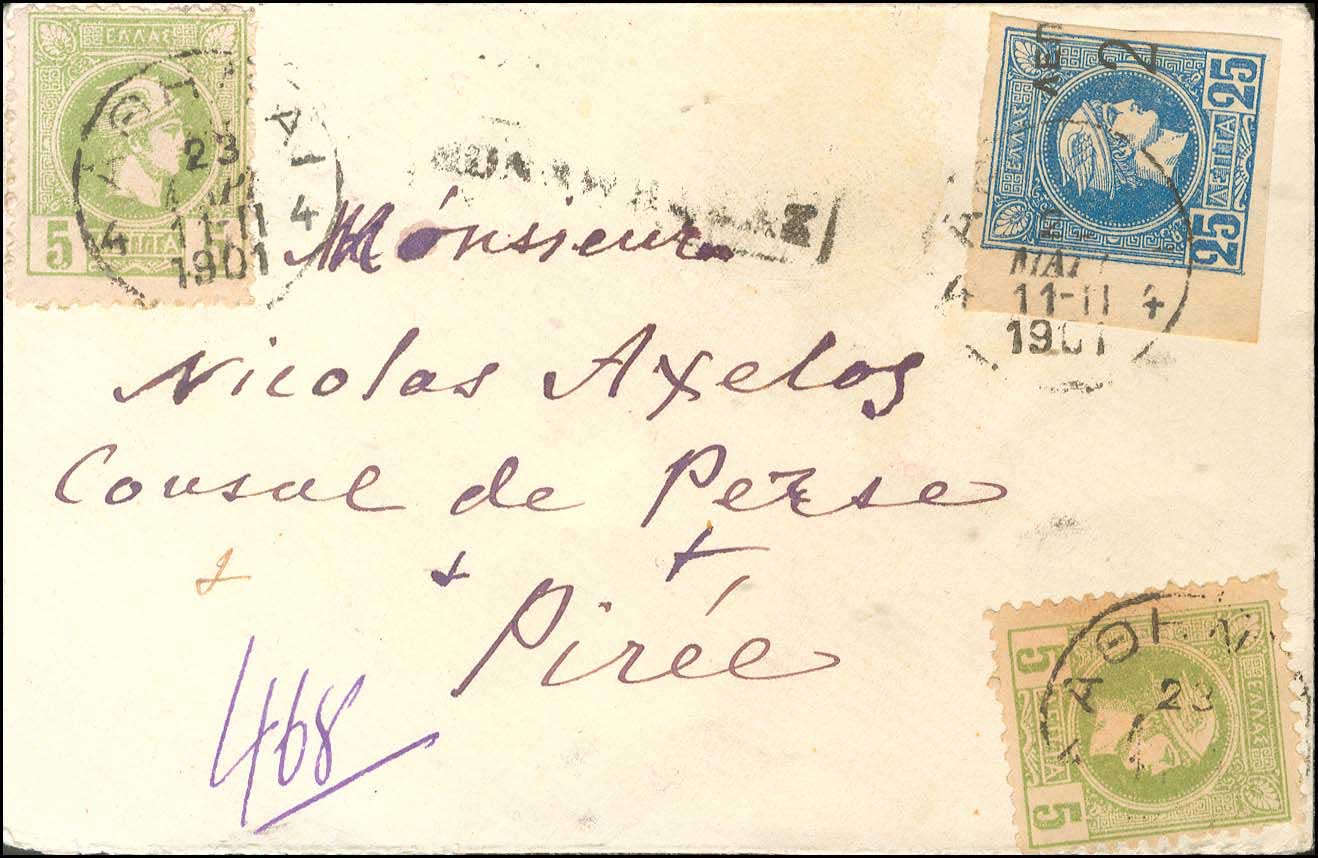 ΕΛΛΑΣ
5 ΛΕΠΤΑ 5
ΑΘΗΝΑΙ
23
4 11-11 4
1901
ΕΛΛΑΣ
25 ΛΕΠΤΑ 25
ΛΕΠ
2
ΜΑΙ
4 11-11 4
1901
Mónsieur
Nicolas Axelos
Consul de Perse
Pirée
468
ΕΛΛΑΣ
5 ΛΕΠΤΑ 5
ΑΘΗΝ
23